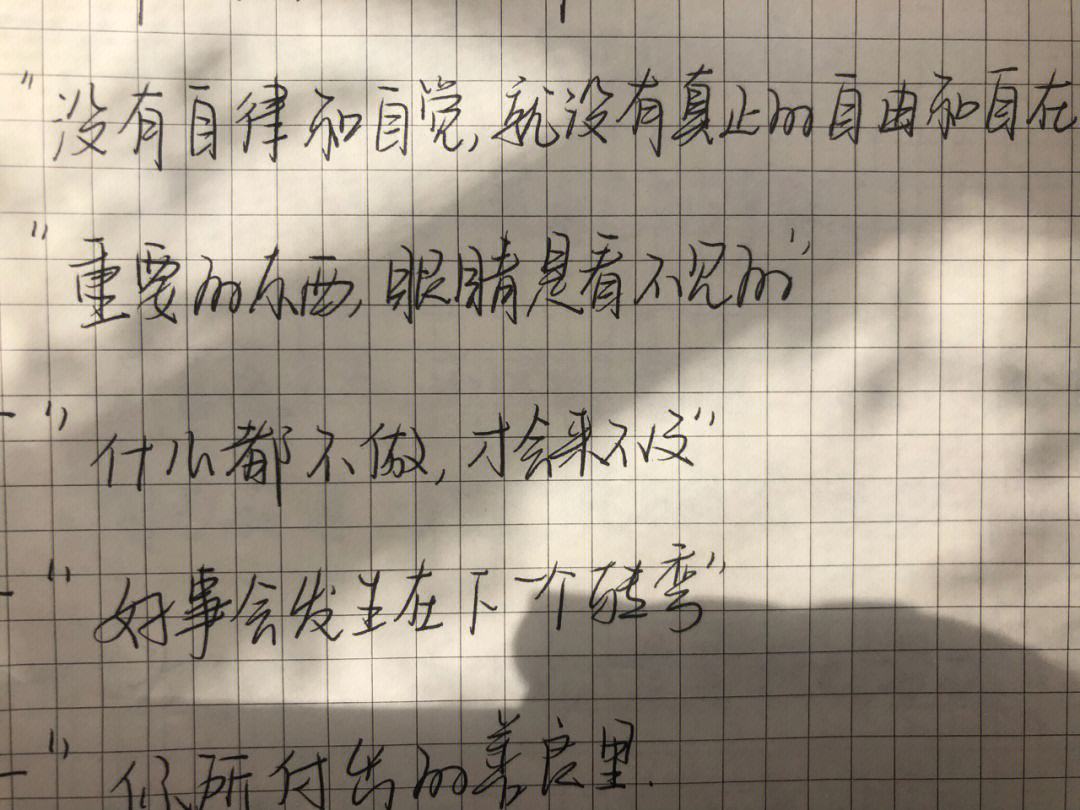 "没有自律和自觉,就没有真正的自由和自在
"重要的东西,眼睛是看不见的"
"什么都不做,才会来不及"
"好事会发生在下一个转弯"
"你所付出的善良里.